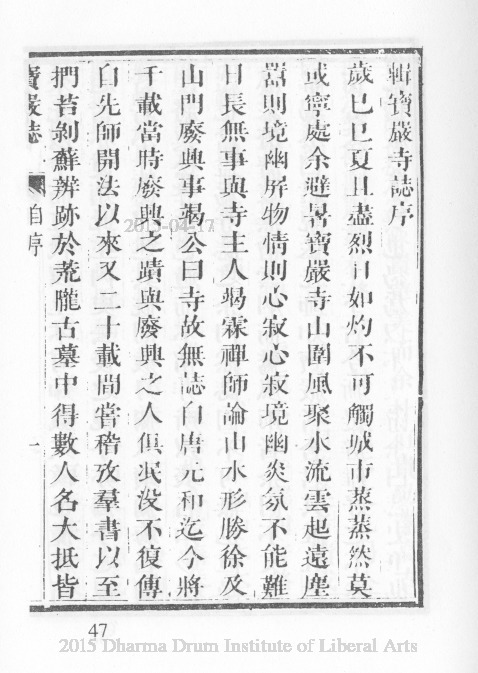 輯寶嚴寺誌序
歲巳巳夏且盡烈日如灼不可觸城市蒸蒸然莫
或寧處余避暑寶嚴寺山圍風聚水流雲起遠塵
囂則境幽屏物情則心寂心寂境幽炎氛不能難
日長無事與寺主人竭霖禪師論山水形勝徐及
山門廢興事竭公曰寺故無誌自唐元和迄今將
千載當時廢興之蹟與廢興之人俱泯沒不復傳
自先師開法以來又二十載間嘗稽攷羣書以至
捫苔剝蘚辨跡於荒隴古墓中得數人名大抵皆
寶嚴誌
自序
一
2015-04-17
47
2015 Dharma Drum Institute of Liberal Arts